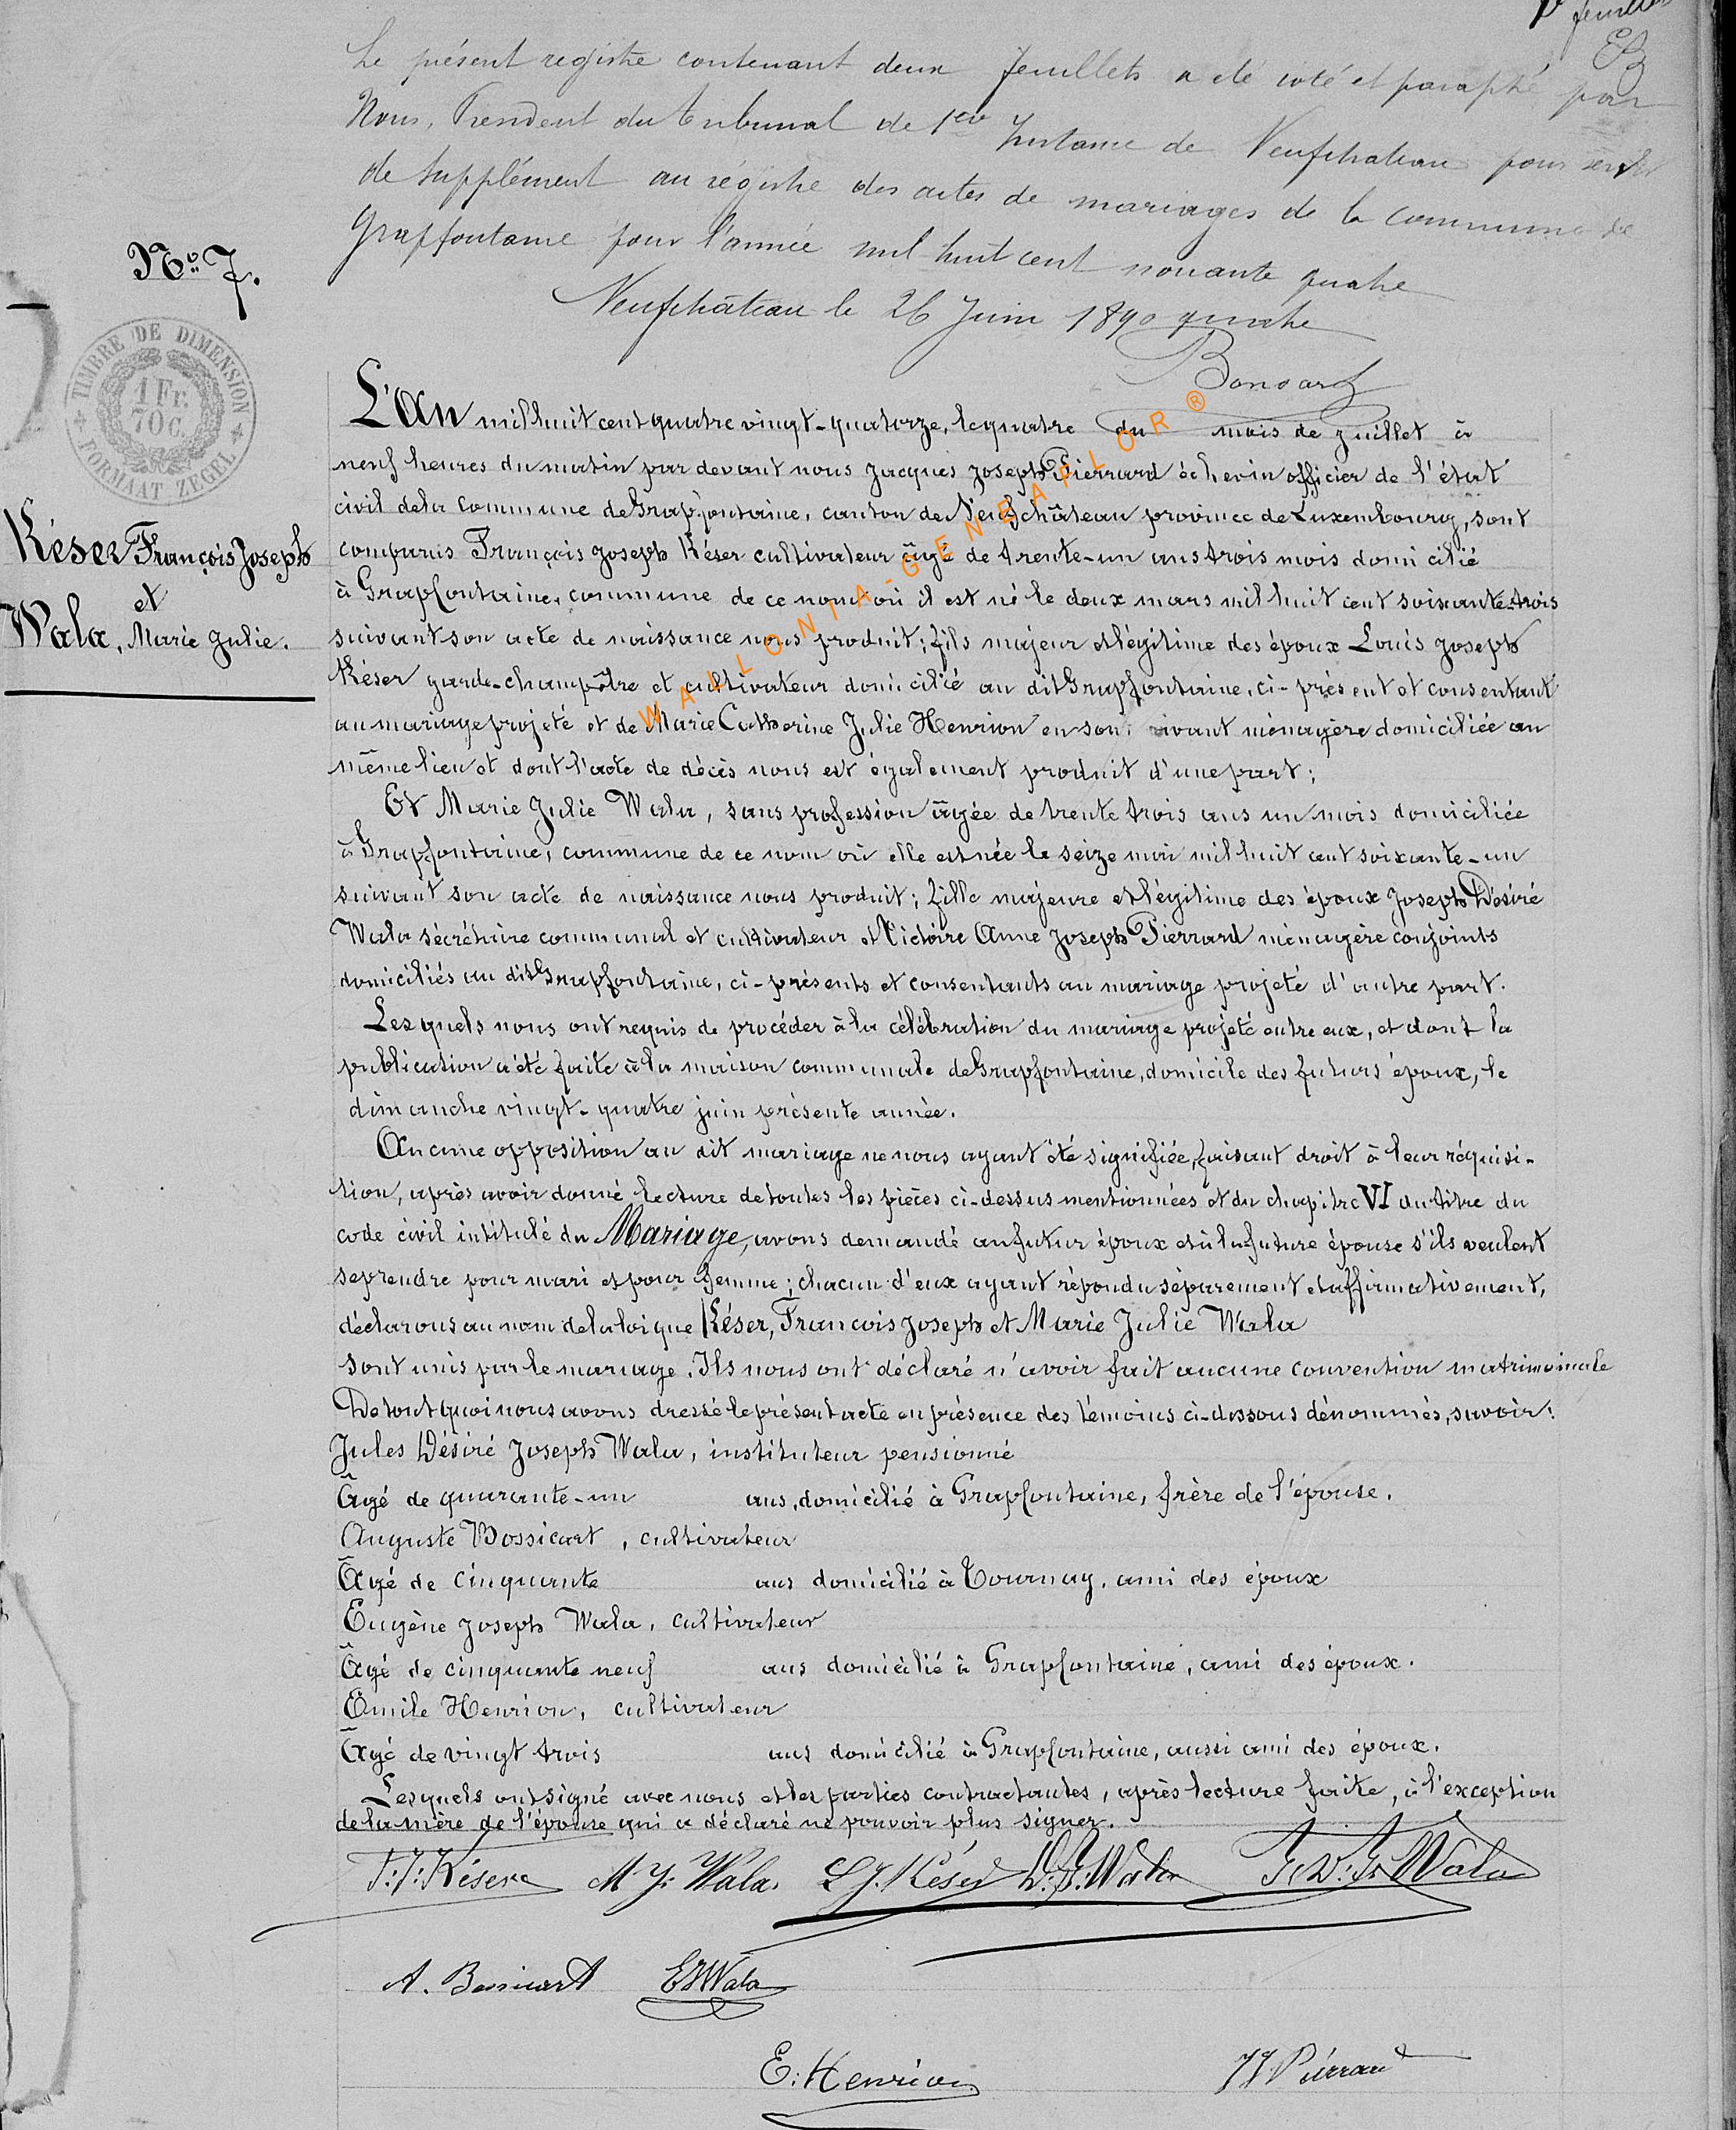 1er feuillet
EB
Le présent registre contenant deux feuillets a été coté et paraphé par
Nous, Président du tribunal de 1ere Instance de Neufchateau pour servir
de supplément au régistre des actes de mariages de la commune de
Grapfontaine pour l'année mil huit cent nonante quatre
Neufchâteau le 26 Juin 1890 quatre
No 7.
TIMBRE DE DIMENSION
1 Fr.
70 C.
FORMAAT ZEGEL
Késer François Joseph
et
Wala, Marie Julie.
L'An mil huit cent quatre vingt-quatorze, le quatre du mois de juillet à
neuf heures du matin par devant nous Jacques Joseph Pierrard échevin officier de l'état
civil de la commune de Grapfontaine, canton de Neufchâteau province de Luxembourg, sont
comparus François Joseph Késer cultivateur âgé de trente-un ans trois mois domicilié
à Grapfontaine, commune de ce nom où il est né le deux mars mil huit cent soixante-trois
suivant son acte de naissance nous produit; fils majeur et légitime des époux Louis Joseph
Késer garde-champêtre et cultivateur domicilié au dit Grapfontaine, ci-présent et consentant
au mariage projeté et de Marie Catherine Julie Henrion en son vivant ménagère domiciliée au
même lieu et dont l'acte de décès nous est également produit d'une part;
Et Marie Julie Wala, sans profession âgée de trente trois ans un mois domiciliée
à Grapfontaine, commune de ce nom où elle est née le seize mai mil huit cent soixante-un
suivant son acte de naissance nous produit; fille majeure et légitime des époux Joseph Désiré
Wala sécrétaire communal et cultivateur et Victoire Anne Joseph Pierrard ménagère conjoints
domiciliés au dit Grapfontaine, ci-présents et consentants au mariage projeté d'autre part.
Lesquels nous ont requis de procéder à la célébration du mariage projeté entre eux, et dont la
publication a été faite à la maison communale de Grapfontaine, domicile des futurs époux, le
dimanche vingt-quatre juin présente année.
Aucune opposition au dit mariage ne nous ayant été signifiée, faisant droit à leur réquisi-
tion, après avoir donné lecture de toutes les pièces ci-dessus mentionnées et du chapitre VI du titre du
code civil intitulé du Mariage, avons demandé au futur époux et à la future épouse s'ils veulent
se prendre pour mari et pour femme; chacun d'eux ayant répondu séparement et affirmativement,
déclarons au nom de la loi que Késer, François Joseph et Marie Julie Wala
sont unis par le mariage. Ils nous ont déclaré n'avoir fait aucune convention matrimoniale
De tout quoi nous avons dressé le présent acte en présence des témoins ci-dessous dénommés, savoir:
Jules Désiré Joseph Wala, instituteur pensionné
âgé de quarante-un ans, domicilié à Grapfontaine, frère de l'épouse.
Auguste Bossicart, cultivateur
âgé de cinquante ans domicilié à Tournay, ami des époux
Eugène Joseph Wala, cultivateur
âgé de cinquante neuf ans domicilié à Grapfontaine, ami des époux.
Emile Henrion, cultivateur
âgé de vingt trois ans domicilié à Grapfontaine, aussi ami des époux.
Lesquels ont signé avec nous et les parties contractantes, après lecture faite, à l'exception
de la mère de l'épouse qui a déclaré ne pouvoir plus signer.
F: J: Késer M. J: Wala. L J. Késer D: J: Wala J: D: J: Wala
A. Bossicart EJWala
E: Henrion JJ Pierrard
WALLONIA-GENEAFLOR ®